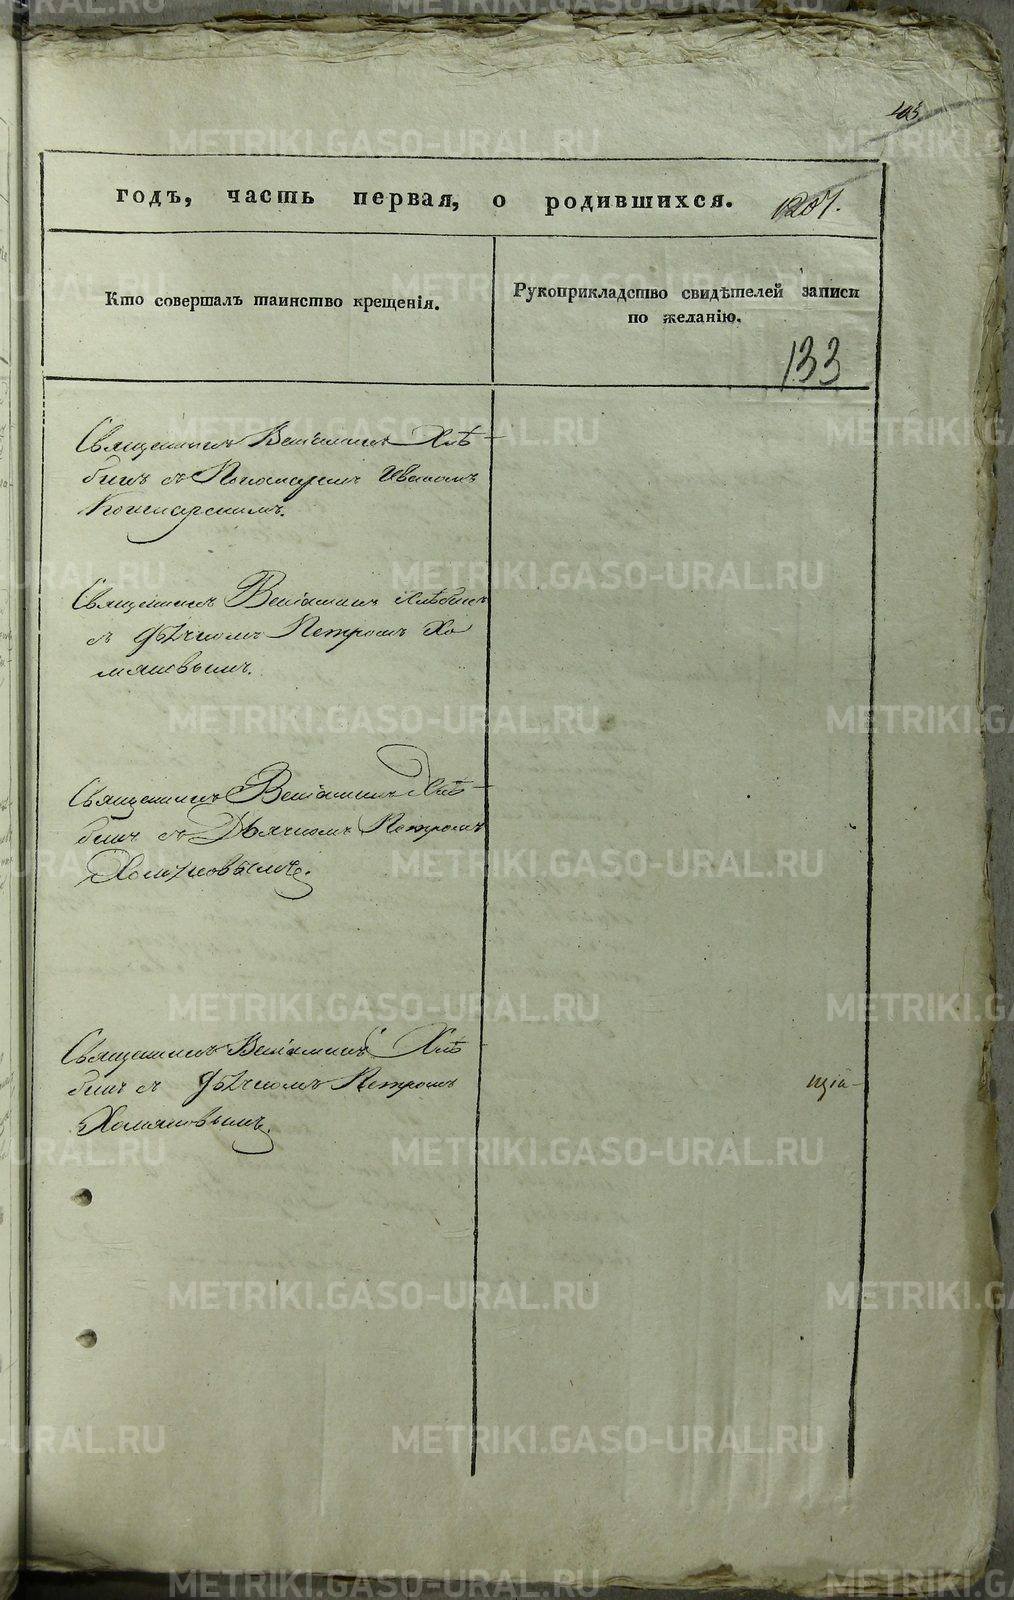 403
годъ, часть первая, о родившихся. 1207.
Кто совершалъ таинство крещенія.
Рукоприкладство свидѣтелей записи
по желанію.
133
Священникъ Веніаминъ Хлѣ-
бинъ съ Пономаремъ Иваномъ
Священникъ Веніаминъ Хлѣбинъ
съ Дьячкомъ Петромъ Хо
мяковымъ.
Священникъ Веніаминъ Хлѣ-
бинъ съ Дьячкомъ Петромъ
Хомяковымъ.
Священникъ Веніаминъ Хлѣ-
бинъ съ Дьячкомъ Петромъ
Хомяковымъ.
METRIKI.GASO-URAL.RU